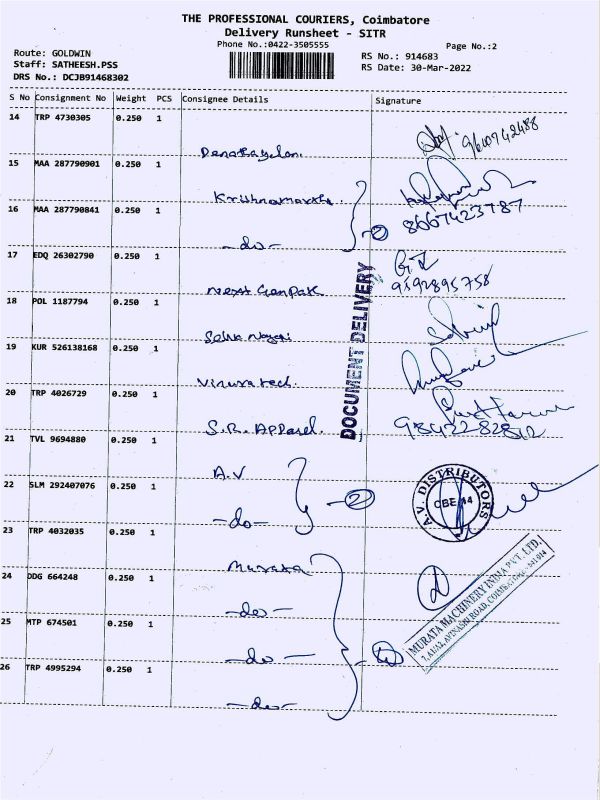 THE PROFESSIONAL COURIERS, Coimbatore
Delivery Runsheet - SITR
Phone No.:0422-3505555
Page No.:2
Route: GOLDWIN
Staff: SATHEESH.PSS
DRS No.: DCJB91468302
RS No.: 914683
RS Date: 30-Mar-2022
S No Consignment No Weight PCS Consignee Details Signature
14 TRP 4730305 0.250 1
9600742488
15 MAA 287790901 0.250 1
Krishnamoorthi
16 MAA 287790841 0.250 1
8667423787
-do- 2
17 EDQ 26302790 0.250 1
9592895758
Next Genpark
18 POL 1187794 0.250 1
Selva Nagai
19 KUR 526138168 0.250 1
Vinura tech.
20 TRP 4026729 0.250 1
S.R. Apparel. 9842282812
DOCUMENT DELIVERY
21 TVL 9694880 0.250 1
A.V
22 SLM 292407076 0.250 1
-do- 2
A.V. DISTRIBUTORS
CBE-14
23 TRP 4032035 0.250 1
Murata
24 DDG 664248 0.250 1
-do-
25 MTP 674501 0.250 1
-do- 4
MURATA MACHINERY INDIA PVT. LTD.
26 TRP 4995294 0.250 1
-do-